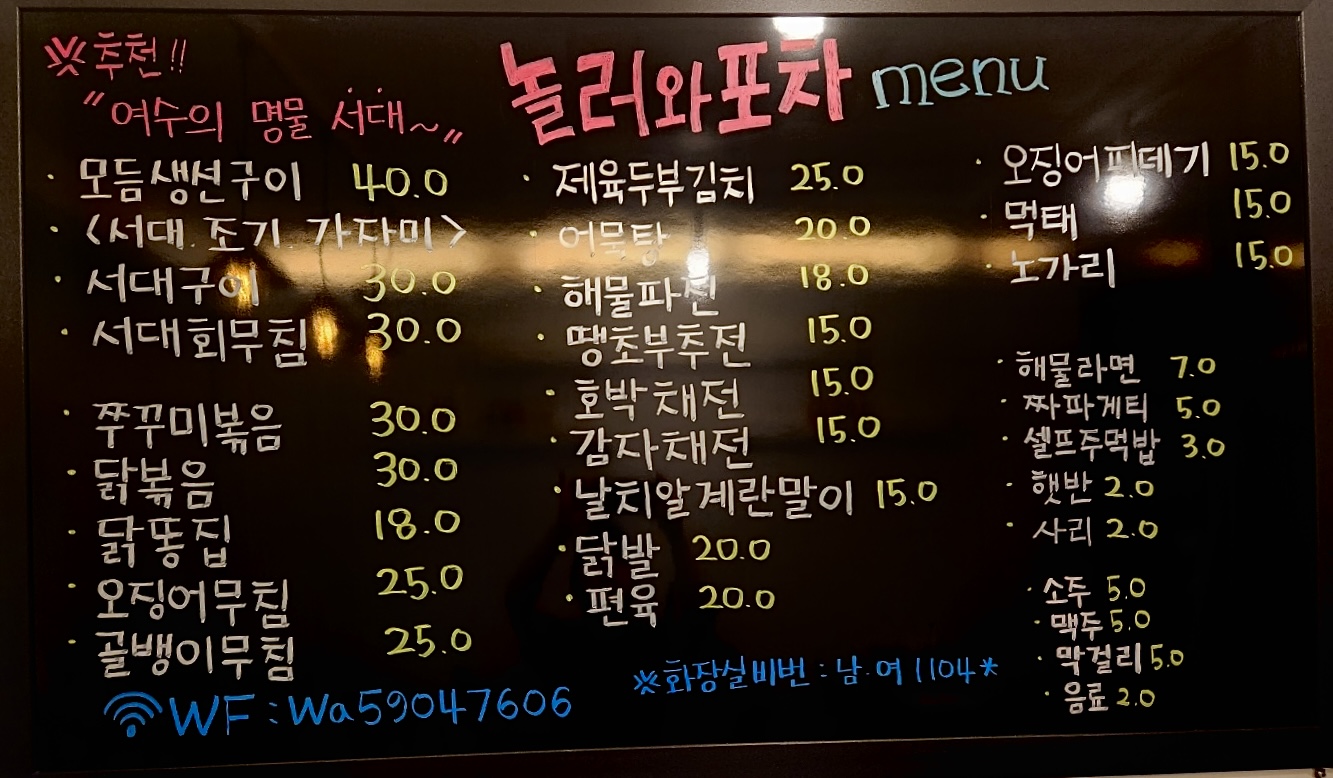 ※추천!!
"여수의 명물 서대~"
놀러와포차 menu
· 모듬생선구이 40.0
· <서대. 조기. 가자미>
· 서대구이 30.0
· 서대회무침 30.0
· 쭈꾸미볶음 30.0
· 닭볶음 30.0
· 닭똥집 18.0
· 오징어무침 25.0
· 골뱅이무침 25.0
WF : Wa59047606
· 제육두부김치 25.0
· 어묵탕 20.0
· 해물파전 18.0
· 땡초부추전 15.0
· 호박채전 15.0
· 감자채전 15.0
· 날치알계란말이 15.0
· 닭발 20.0
· 편육 20.0
※화장실비번 : 남.여 1104*
· 오징어피데기 15.0
· 먹태 15.0
· 노가리 15.0
· 해물라면 7.0
· 짜파게티 5.0
· 셀프주먹밥 3.0
· 햇반 2.0
· 사리 2.0
· 소주 5.0
· 맥주 5.0
· 막걸리 5.0
· 음료 2.0